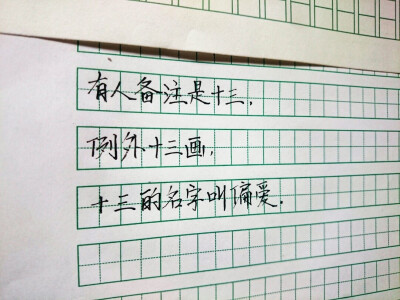 有人备注是十三，
例外十三画，
十三的名字叫偏爱.